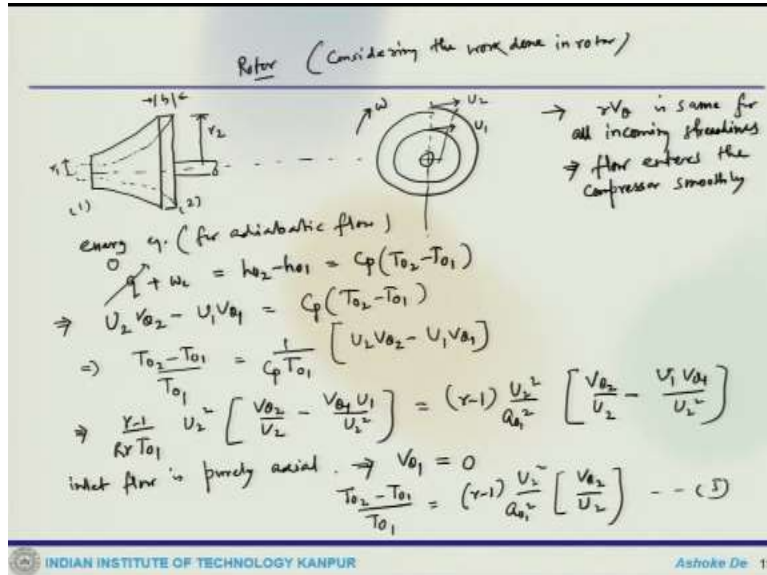 Rotor (Considering the work done in rotor)
→|b|←
r₂
r₁
(1)
(2)
ω
U₂
U₁
→ rVθ is same for
all incoming streamlines
⇒ flow enters the
compressor smoothly
energy eq. (for adiabatic flow)
0
q + wc = h02 - h01 = Cp(T02 - T01)
⇒ U₂Vθ2 - U₁Vθ1 = Cp(T02 - T01)
⇒ (T02 - T01)/T01 = 1/(Cp T01) [U₂Vθ2 - U₁Vθ1]
⇒ (γ-1)/(Rγ T01) U₂² [Vθ2/U₂ - Vθ1 U₁/U₂²] = (γ-1) U₂²/a01² [Vθ2/U₂ - U₁Vθ1/U₂²]
inlet flow is purely axial. ⇒ Vθ1 = 0
(T02 - T01)/T01 = (γ-1) U₂²/a01² [Vθ2/U₂] --(5)
INDIAN INSTITUTE OF TECHNOLOGY KANPUR
Ashoke De 1